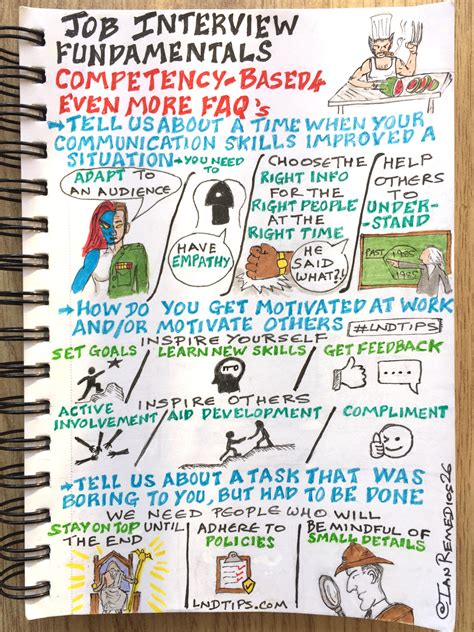 JOB INTERVIEW
FUNDAMENTALS
COMPETENCY-BASED 4
EVEN MORE FAQ's
→TELL US ABOUT A TIME WHEN YOUR
COMMUNICATION SKILLS IMPROVED A
SITUATION→YOU NEED TO
ADAPT TO
AN AUDIENCE
HAVE
EMPATHY
CHOOSE THE
RIGHT INFO
FOR THE
RIGHT PEOPLE
AT THE
RIGHT TIME
HE
SAID
WHAT?!
HELP
OTHERS
TO
UNDER-
STAND
PAST 1985
1985
→HOW DO YOU GET MOTIVATED AT WORK
AND/OR MOTIVATE OTHERS #LNDTIPS
INSPIRE YOURSELF
SET GOALS / LEARN NEW SKILLS / GET FEEDBACK
INSPIRE OTHERS
ACTIVE
INVOLVEMENT / AID DEVELOPMENT / COMPLIMENT
→TELL US ABOUT A TASK THAT WAS
BORING TO YOU, BUT HAD TO BE DONE
WE NEED PEOPLE WHO WILL
STAY ON TOP UNTIL
THE END
ADHERE TO
POLICIES
BE MINDFUL OF
SMALL DETAILS
LNDTIPS.COM
@IAN REMEDIOS26